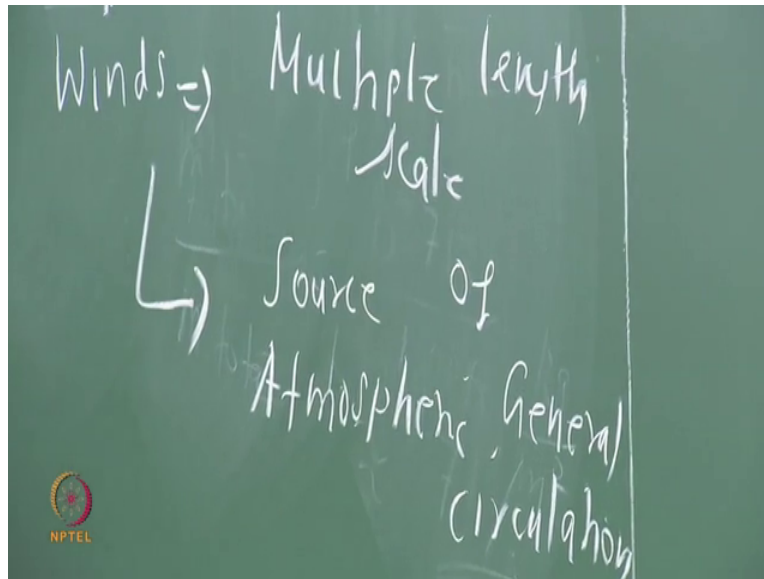 Winds => Multiple length
scale
Source of
Atmospheric General
circulation
NPTEL